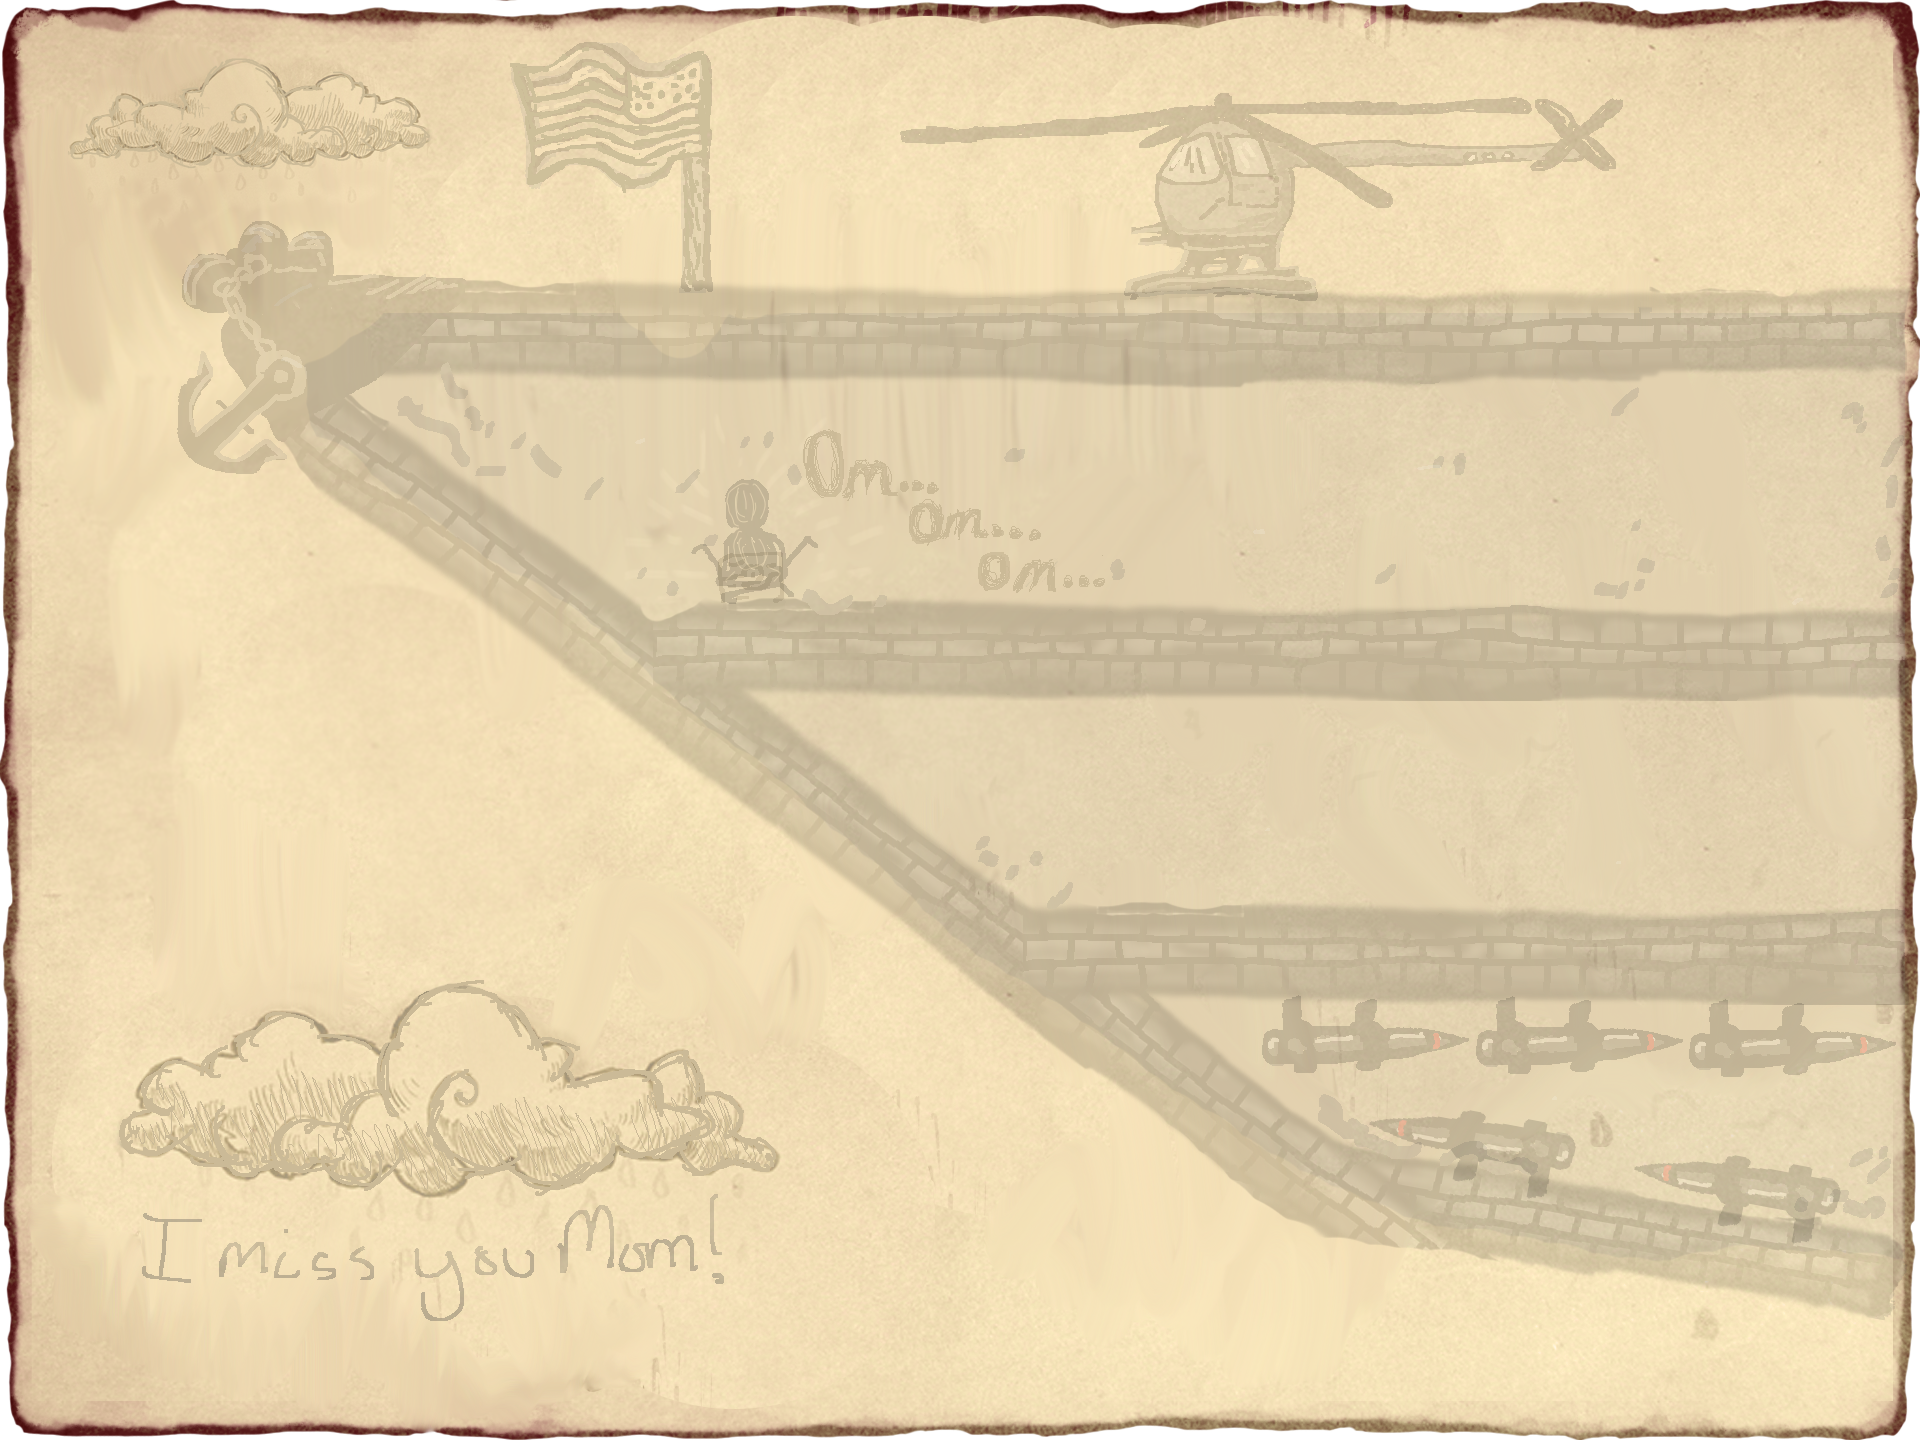 Om...
om...
om...
I miss you Mom!